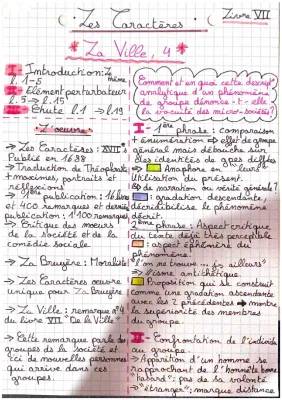 Les Caractères.
Livre VII
* La Ville, 4 *
I Introduction: Le thème
l. 1-5
II Elément perturbateur
l. 5 → l. 15
III Chute l. 1 → l. 19
Comment et en quoi cette descript°
analytique d'un phénomène
de groupe dénonce-t-elle
la vacuité des micro-sociétés?
L'oeuvre
→ Les Caractères: XVIIe
Publié en 1688
→ Traduction de Théophraste
+ maximes, portraits et
réflexions
publication: 16 livres
et 400 remarques et dernière
publication: 1100 remarques
→ Critique des moeurs
de la société et de la
comédie sociale
→ La Bruyère: Moraliste
→ Les Caractères oeuvre
unique pour La Bruyère
→ La Ville: remarque n°4
du livre VII "De la Ville"
→ Cette remarque parle des
groupes de la société et
ici de nouvelles personnes
qui arrive dans ces
groupes.
I - 1ère phrase: comparaison
+ énumération → effet de groupe
général mais débouche sur
des identités de gros
→ Anaphore en "leurs"
Utilisation du présent
de narration ou vérité générale?
: gradation descendante,
décrédibilise le phénomène
décrit.
2ème phrase: Aspect critique
du texte déjà très perceptible
: aspect éphémère du
phénomène.
"l'on se trouve ... ailleurs"
→ antithétique
Proposition qui se construit
comme une gradation ascendante
avec les 2 précédentes → montre
la supériorité des membres
du groupe.
II - Confrontation de l'individu
au groupe
→ Apparition d'un homme se
rapprochant de l'honnête homme
"hasard": pas de sa volonté
→ "étranger": marque distance